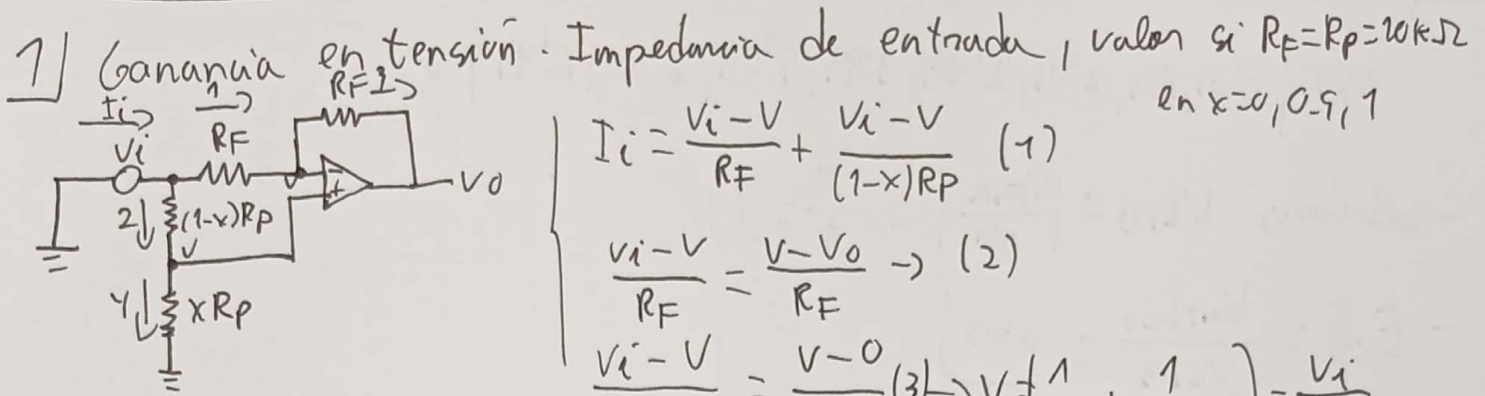 1) Ganancia en tensión. Impedancia de entrada, valor si RF=Rp=20kΩ
en x=0, 0.5, 1
Ii→ 1→ RF 1→
RF
Vi
-Vo
2↓ (1-x)Rp
V
4↓ xRp
Ii = (Vi-V)/RF + (Vi-V)/((1-x)Rp) (1)
(Vi-V)/RF = (V-Vo)/RF → (2)
Vi-V = V-0 (3) → V 1 1 = Vi